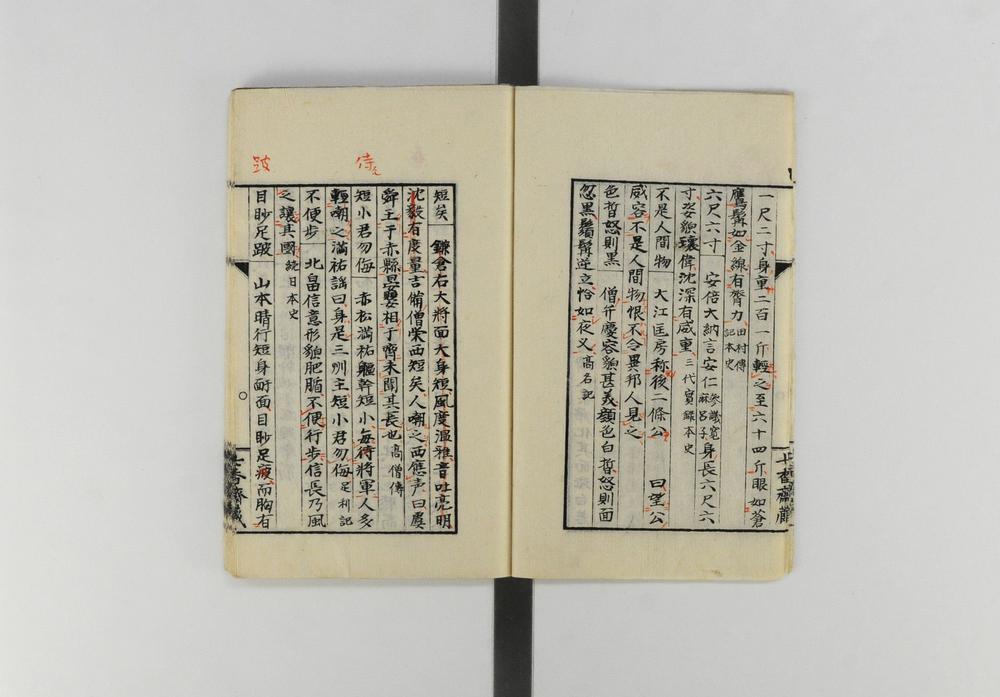 一尺二寸身重二百一斤輕之至六十四斤眼如蒼
鷹髯如金線有膂力 田村傳 記本史
六尺六寸 安倍大納言安仁 參議寬 麻呂子 身長六尺六
寸姿貌瓌偉沈深有威重 三代實錄本史
不是人間物 大江匡房称後二條公 曰望公
威容不是人間物恨不令異邦人見之
色晳怒則黒 僧弁慶容貌甚美顔色白晳怒則面
忽黒鬚髯逆立恰如夜叉 高名記
止杳齋藏
短矣 鎌倉右大將面大身短風度温雅音吐亮明
沈毅有度量吉備僧榮西短矣人嘲之西應声曰虞
舜王于赤縣晏嬰相于齊未聞其長也 高僧傳
短小君勿侮 赤松満祐軀幹短小每侍將軍人多
輕嘲之満祐謡曰身是三州主短小君勿侮 足利記
不便步 北畠信意形貌肥腯不便行步信長乃風
之讓其國 続日本史
目眇足跛 山本晴行短身耐面目眇足疲而胸有
止杳齋藏
侍
跛